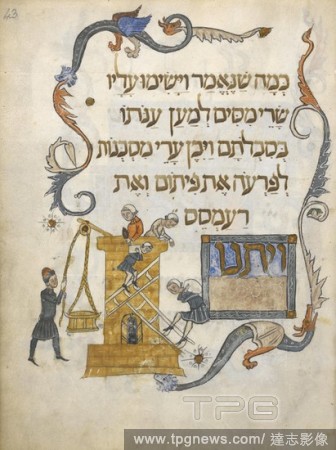 43
כמה שנאמר וישימו עליו
שרי מסים למען ענתו
בסבלתם ויבן ערי מסכנות
לפרעה את פיתום ואת
רעמסס
ויתנו
TPG
www.tpgnews.com/ 達志影像